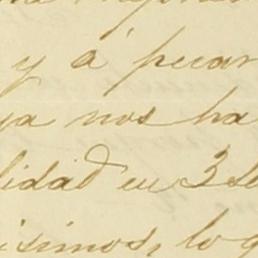 y á pecar
ya nos ha
lidad en 3
isimos, lo q